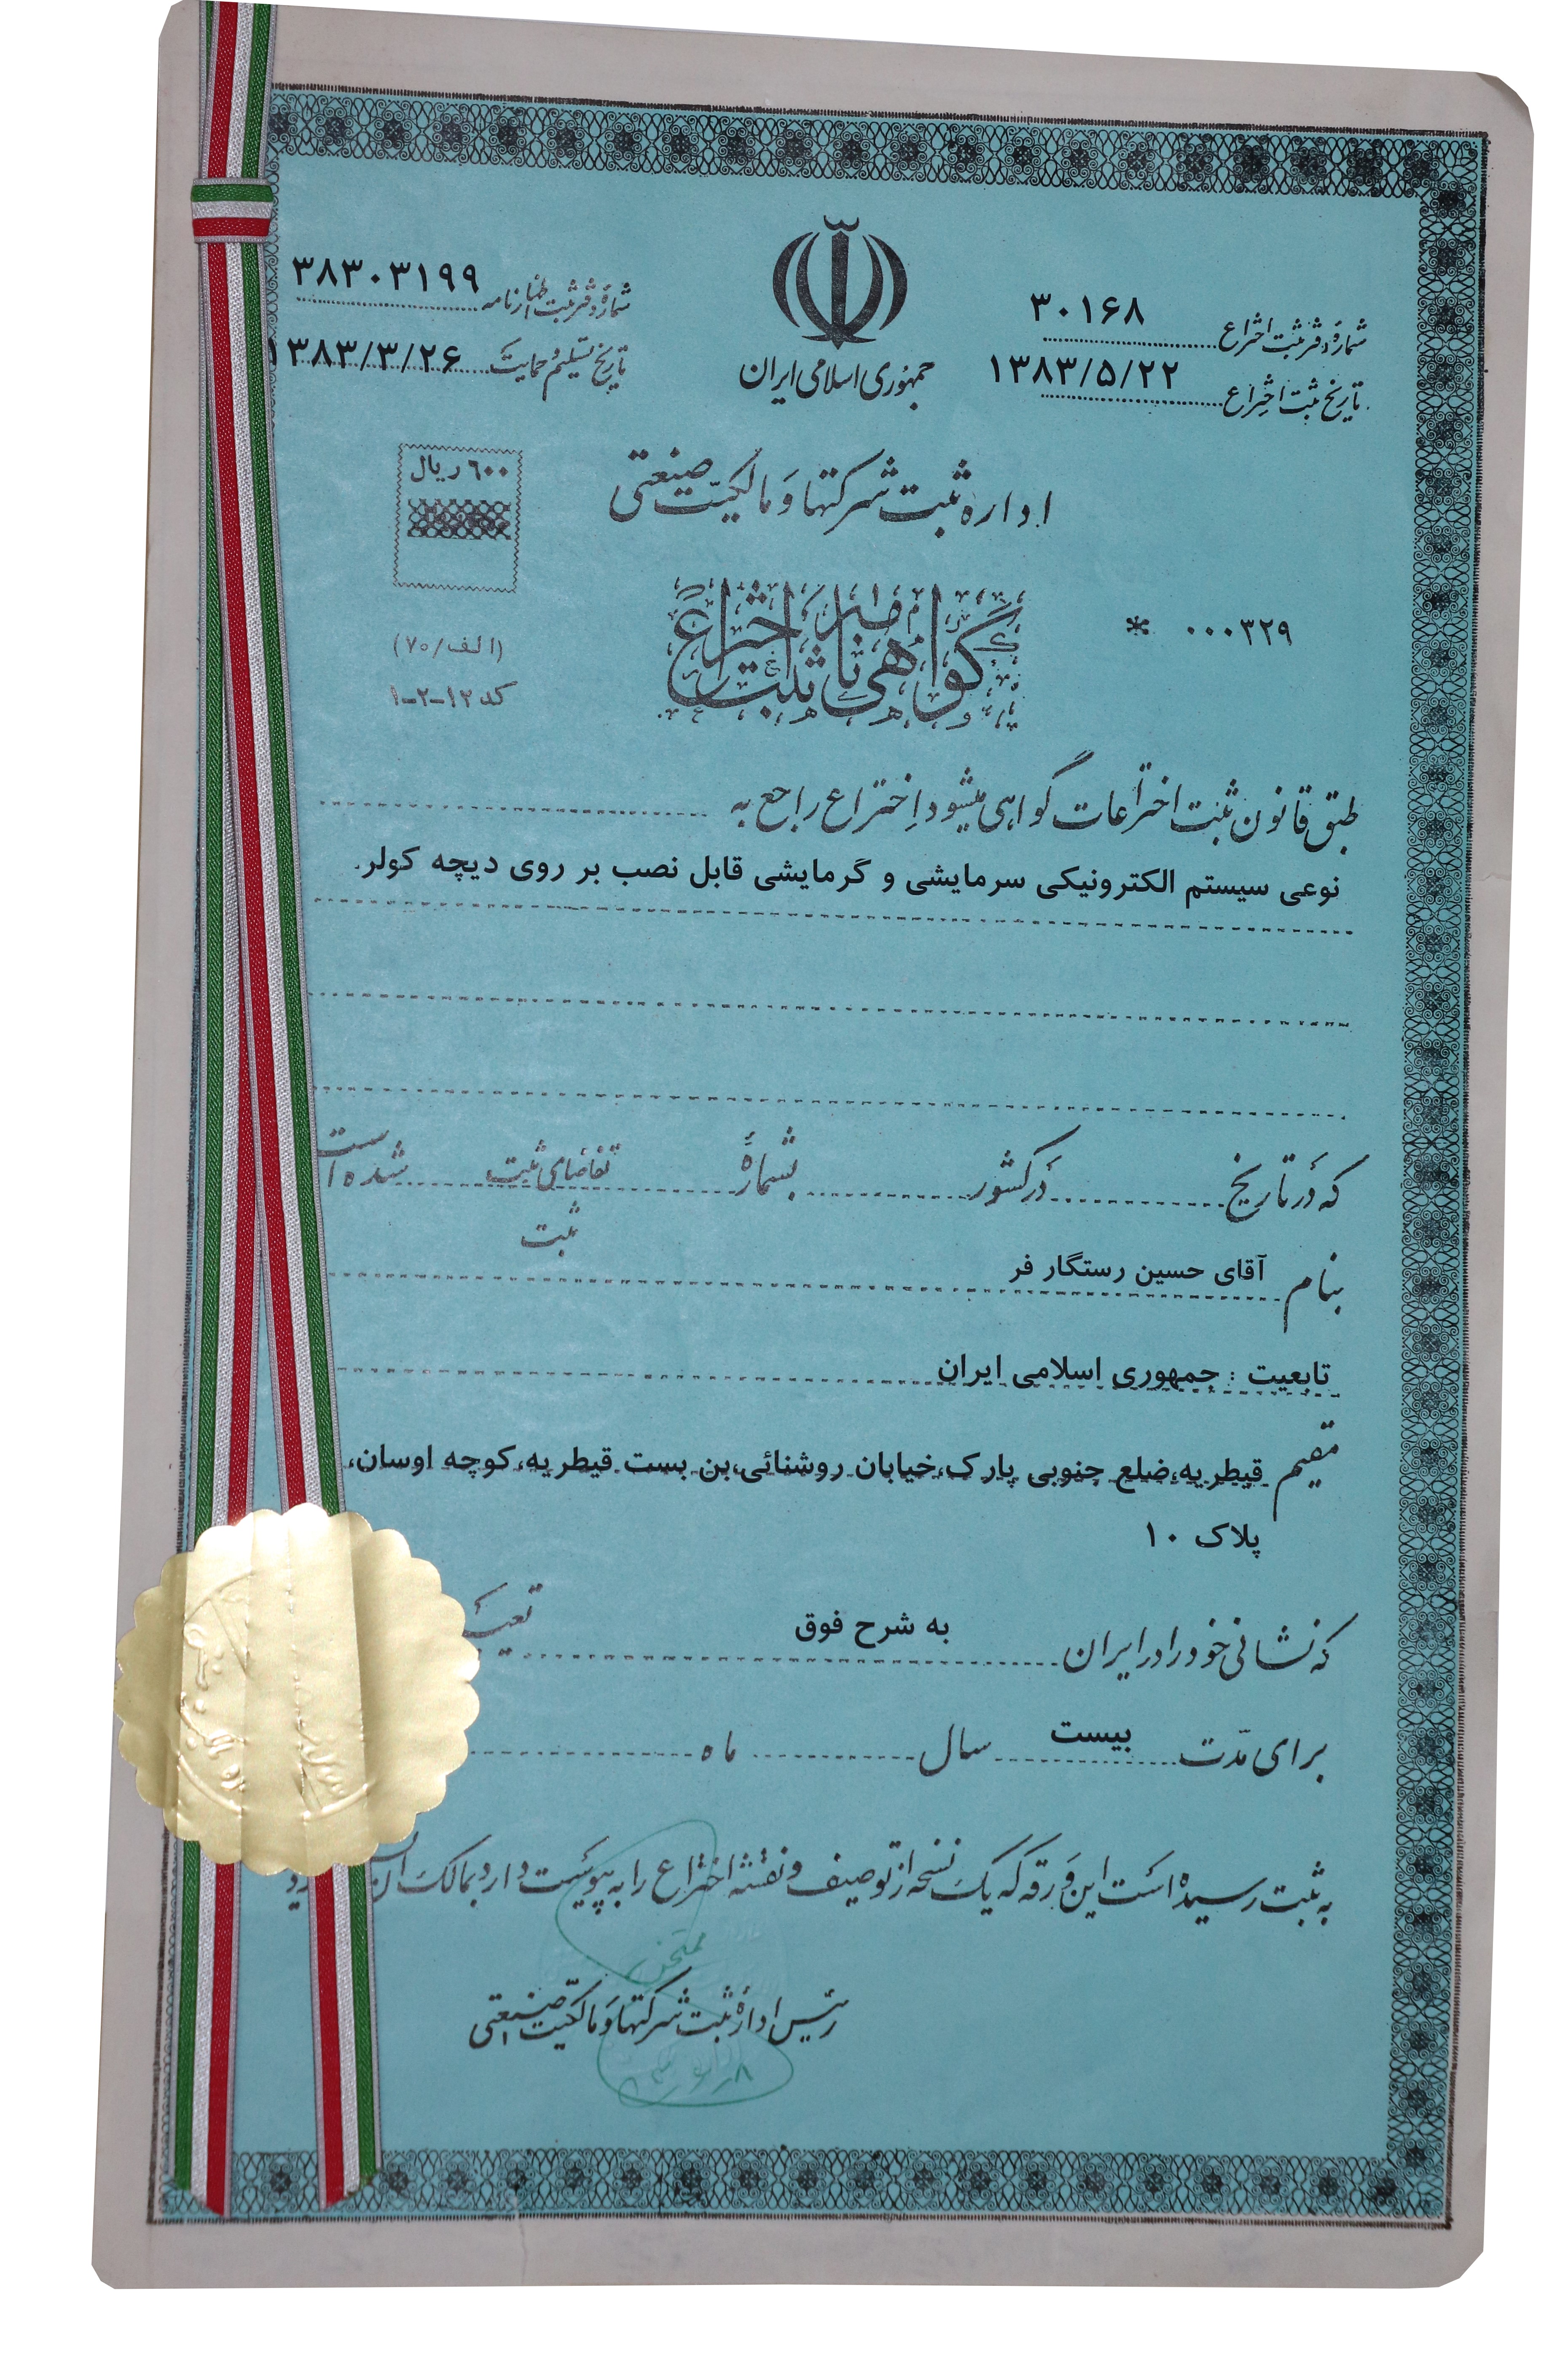 شمارهٔ دفتر ثبت اختراع ۳۰۱۶۸
تاریخ ثبت اختراع ۱۳۸۳/۵/۲۲
جمهوری اسلامی ایران
شمارهٔ دفتر ثبت اظهارنامه ۳۸۳۰۳۱۹۹
تاریخ تسلیم و حمایت ۱۳۸۳/۳/۲۶
اداره ثبت شرکتها و مالکیت صنعتی
۶۰۰ ریال
گواهی نامه ثبت اختراع
۰۰۰۳۲۹ *
(الف/۷۰)
کد ۱۲-۲-۱
طبق قانون ثبت اختراعات گواهی میشود اختراع راجع به
نوعی سیستم الکترونیکی سرمایشی و گرمایشی قابل نصب بر روی دیچه کولر.
که در تاریخ در کشور بشمارهٔ تقاضای ثبت شده است
ثبت
بنام آقای حسین رستگار فر
تابعیت : جمهوری اسلامی ایران
مقیم قیطریه،ضلع جنوبی پارک،خیابان روشنائی،بن بست قیطریه،کوچه اوسان،
پلاک ۱۰
که نشانی خود را در ایران به شرح فوق
برای مدت بیست سال ماه
به ثبت رسیده است این ورقه که یک نسخه از توصیف و نقشه اختراع را به پیوست دارد بمالک آن
رئیس ادارهٔ ثبت شرکتها و مالکیت صنعتی